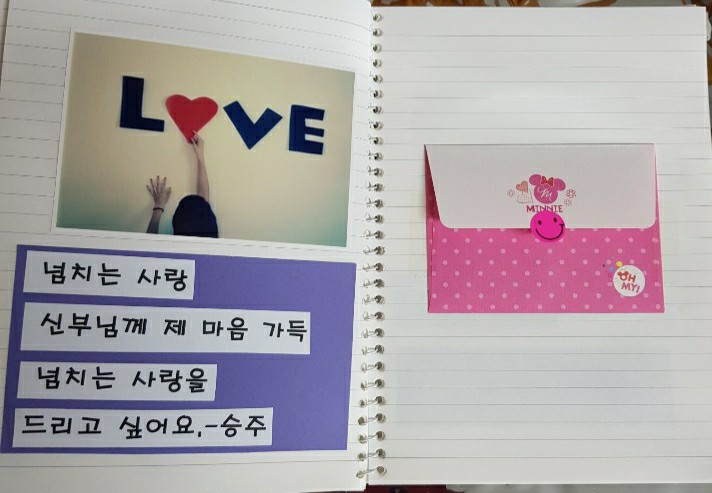 LOVE
넘치는 사랑
신부님께 제 마음 가득
넘치는 사랑을
드리고 싶어요.-승주
MINNIE
OH
MY!